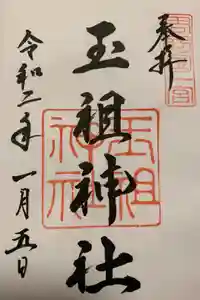 奉拝
玉祖神社
令和二年一月五日
玉祖神社